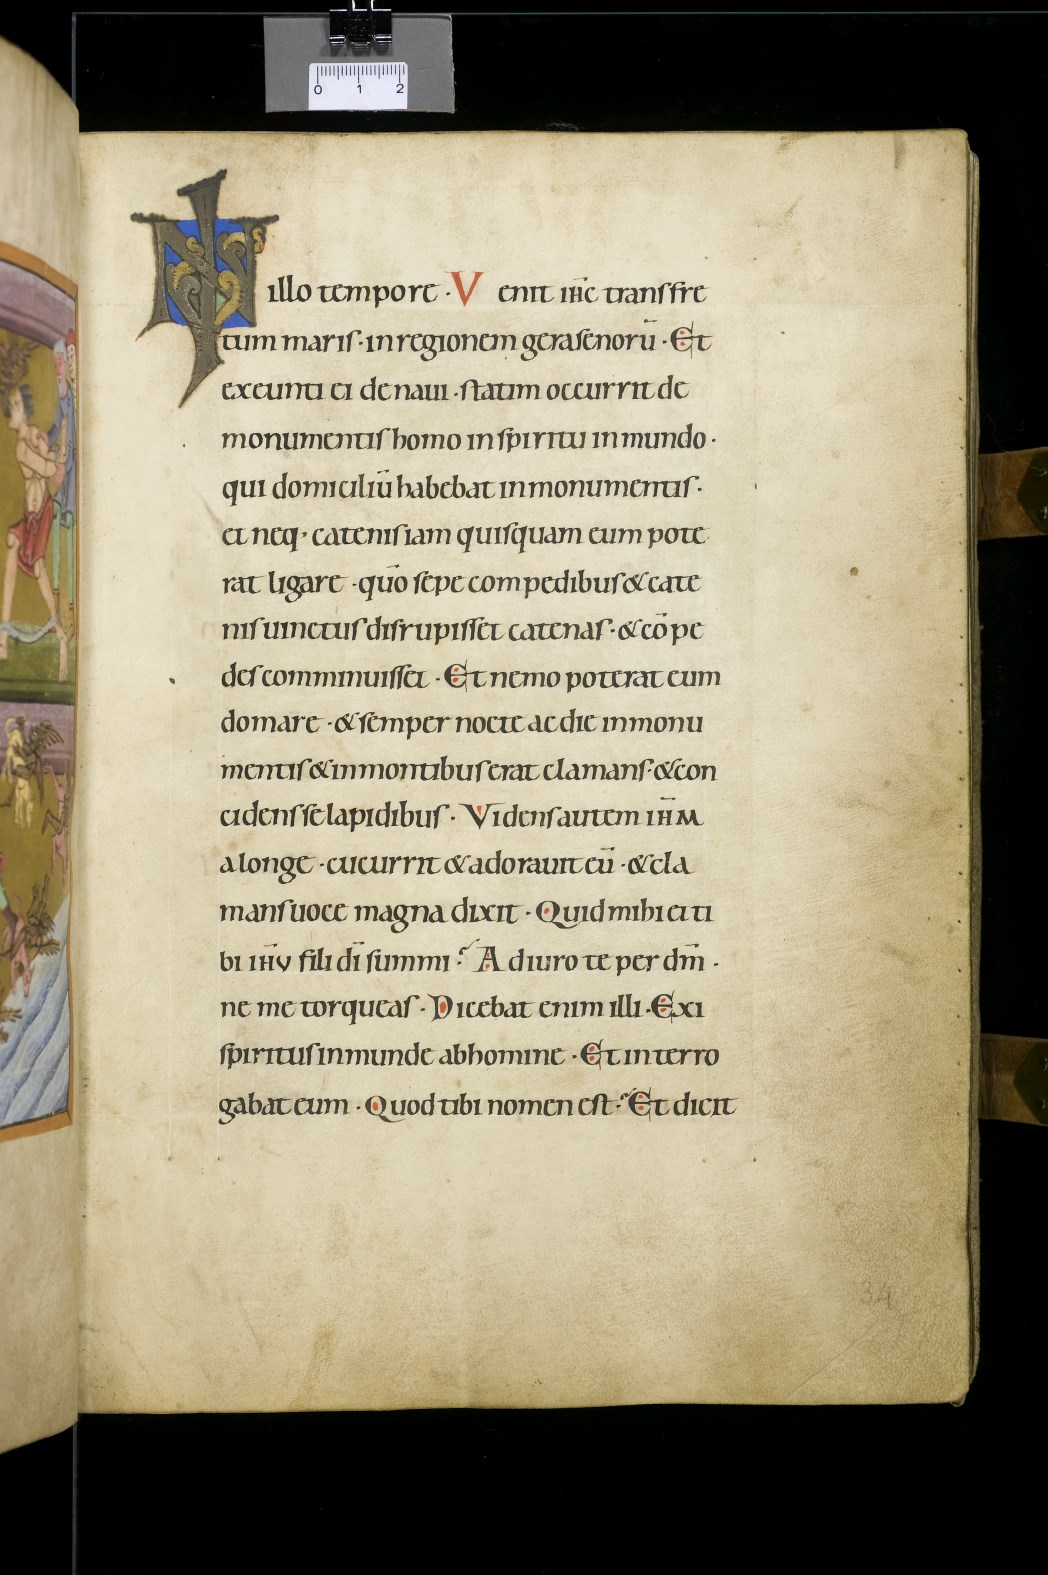 0 1 2
IN illo tempore · Venit ih̅c transfre
tum maris · in regionem gerasenorū · Et
exeunti ei de naui · statim occurrit de
monumentis homo in spiritu inmundo ·
qui domiciliū habebat in monumentis ·
et neq · catenis iam quisquam eum pote
rat ligare · quō sepe compedibus & cate
nis uinctus disrupisset catenas · & cōpe
des comminuisset · Et nemo poterat eum
domare · & semper nocte ac die in monu
mentis & in montibus erat clamans · & con
cidens se lapidibus · Videns autem ih̅m
a longe · cucurrit & adorauit eū · & cla
mans uoce magna dixit · Quid mihi et ti
bi ih̅u fili dī summi ? Adiuro te per dm̅ ·
ne me torqueas · Dicebat enim illi · Exi
spiritus inmunde ab homine · Et interro
gabat eum · Quod tibi nomen est ? Et dicit
34